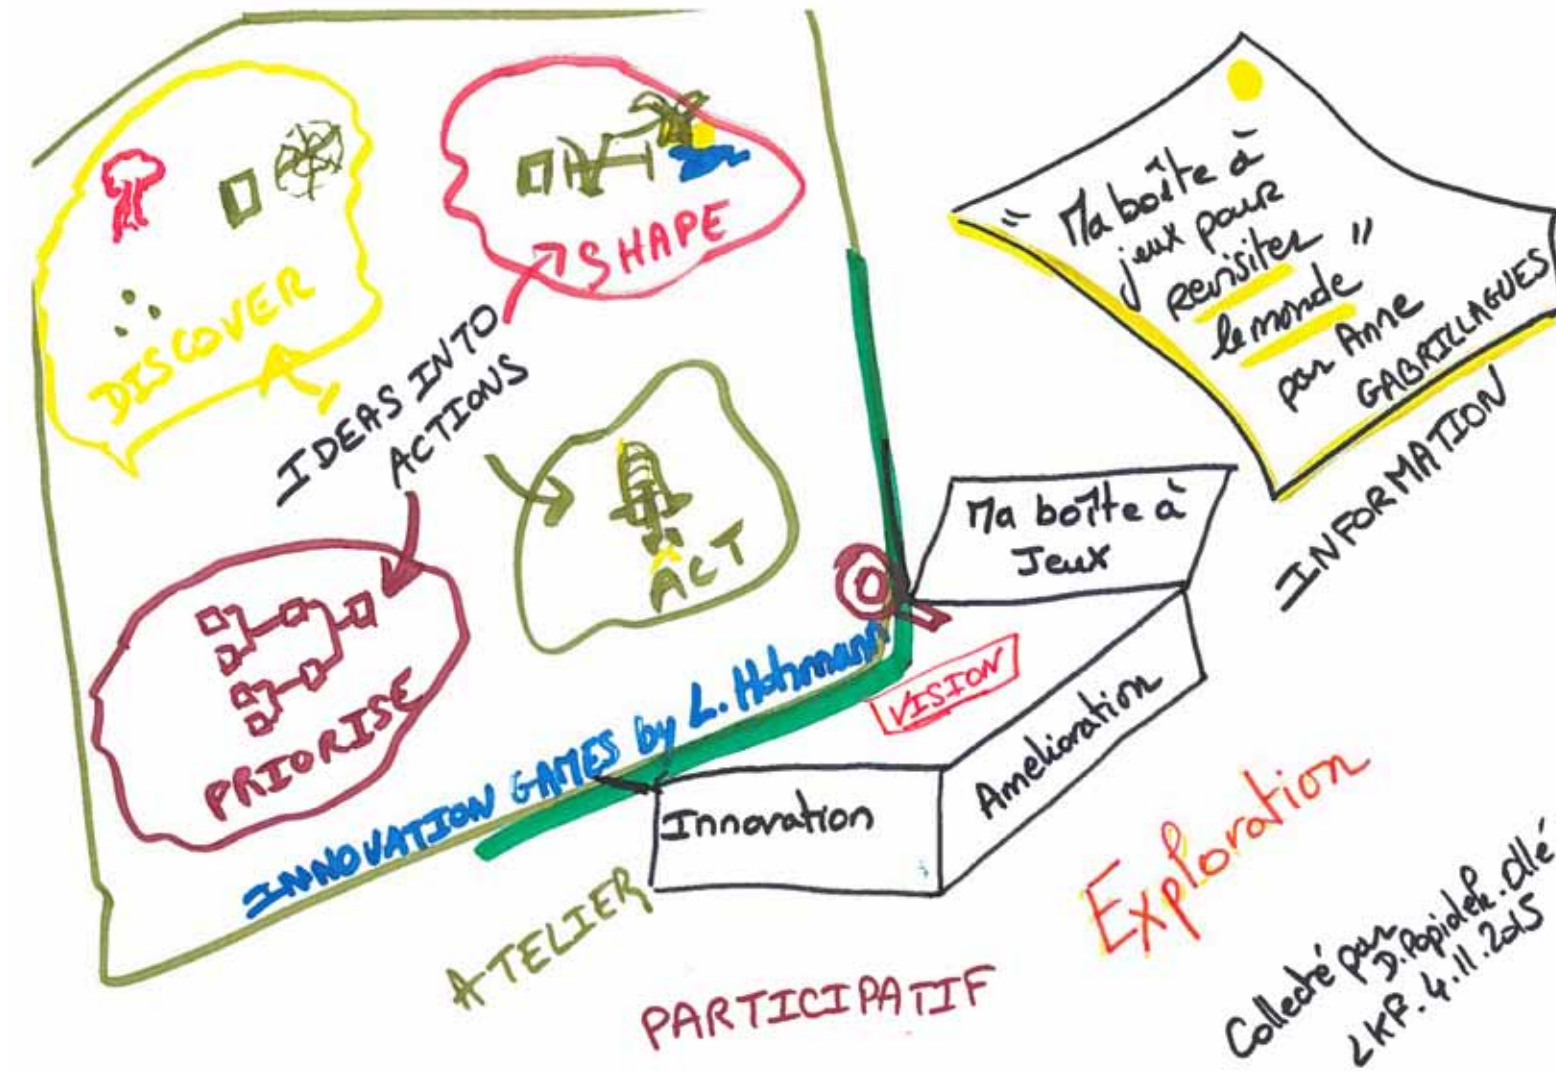 DISCOVER
SHAPE
IDEAS INTO
ACTIONS
ACT
PRIORISE
INNOVATION GAMES by L. Hohmann
"Ma boîte à
jeux pour
revisiter
le monde"
par Anne
GABRILLAGUES
INFORMATION
Ma boîte à
Jeux
VISION
Innovation
Amelioration
ATELIER
PARTICIPATIF
Exploration
Collecté par
D. Popidek. Ollé
LKF. 4.11.2015